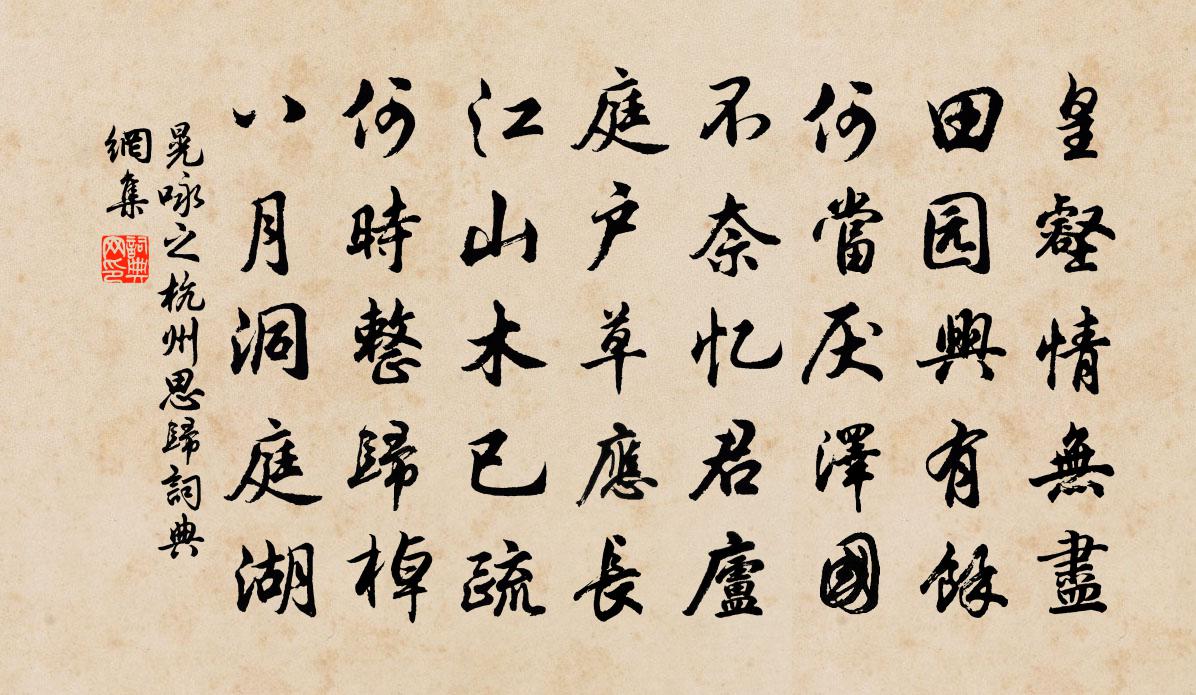 皇壑情無盡
田园興有餘
何當厌澤國
不奈忆君廬
庭户草應長
江山木已疏
何時整歸棹
八月洞庭湖
晃咏之杭州思歸詞典
網集
詞典
网印